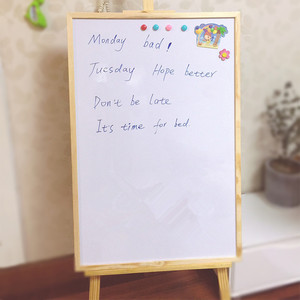 Monday bad,
Tuesday Hope better
Don't be late
It's time for bed